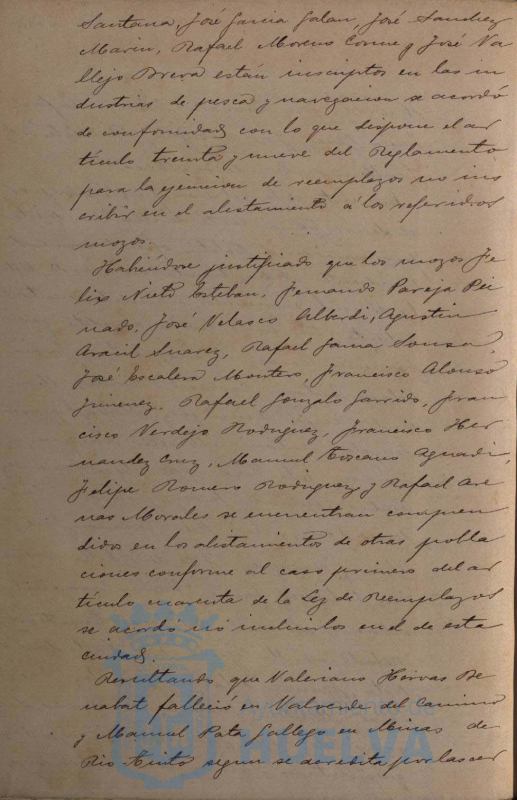 Santana, José Garcia Galan, José Sanchez
Marin, Rafael Moreno Corme y José Va
llejo Brera están inscriptos en las in
dustrias de pesca y navegacion se acordó
de conformidad con lo que dispone el ar
tículo treinta y nueve del Reglamento
para la ejecucion de reemplazos no ins
cribir en el alistamiento á los referidos
mozos.
Habiéndose justificado que los mozos Fe
lix Nieto Esteban, Fernando Pareja Pei
nado, José Velasco Alberdi, Agustin
Aracil Suarez, Rafael Garcia Sousa,
José Escalera Montero, Francisco Alonso
Jimenez, Rafael Gonzalo Garrido, Fran
cisco Verdejo Rodriguez, Francisco Her
nandez Cruz, Manuel Toscano Aguadi,
Felipe Romero Rodriguez y Rafael Are
nas Morales se encuentran compren
didos en los alistamientos de otras pobla
ciones conforme al caso primero del ar
tículo cuarenta de la Ley de Reemplazos
se acordó nó incluirlos en el de esta
ciudad.
Resultando que Valeriano Hervas Be
nabat falleció en Valverde del Camino
y Manuel Pata Gallego en Minas de
Rio Tinto segun se acredita por las cer
HUELVA